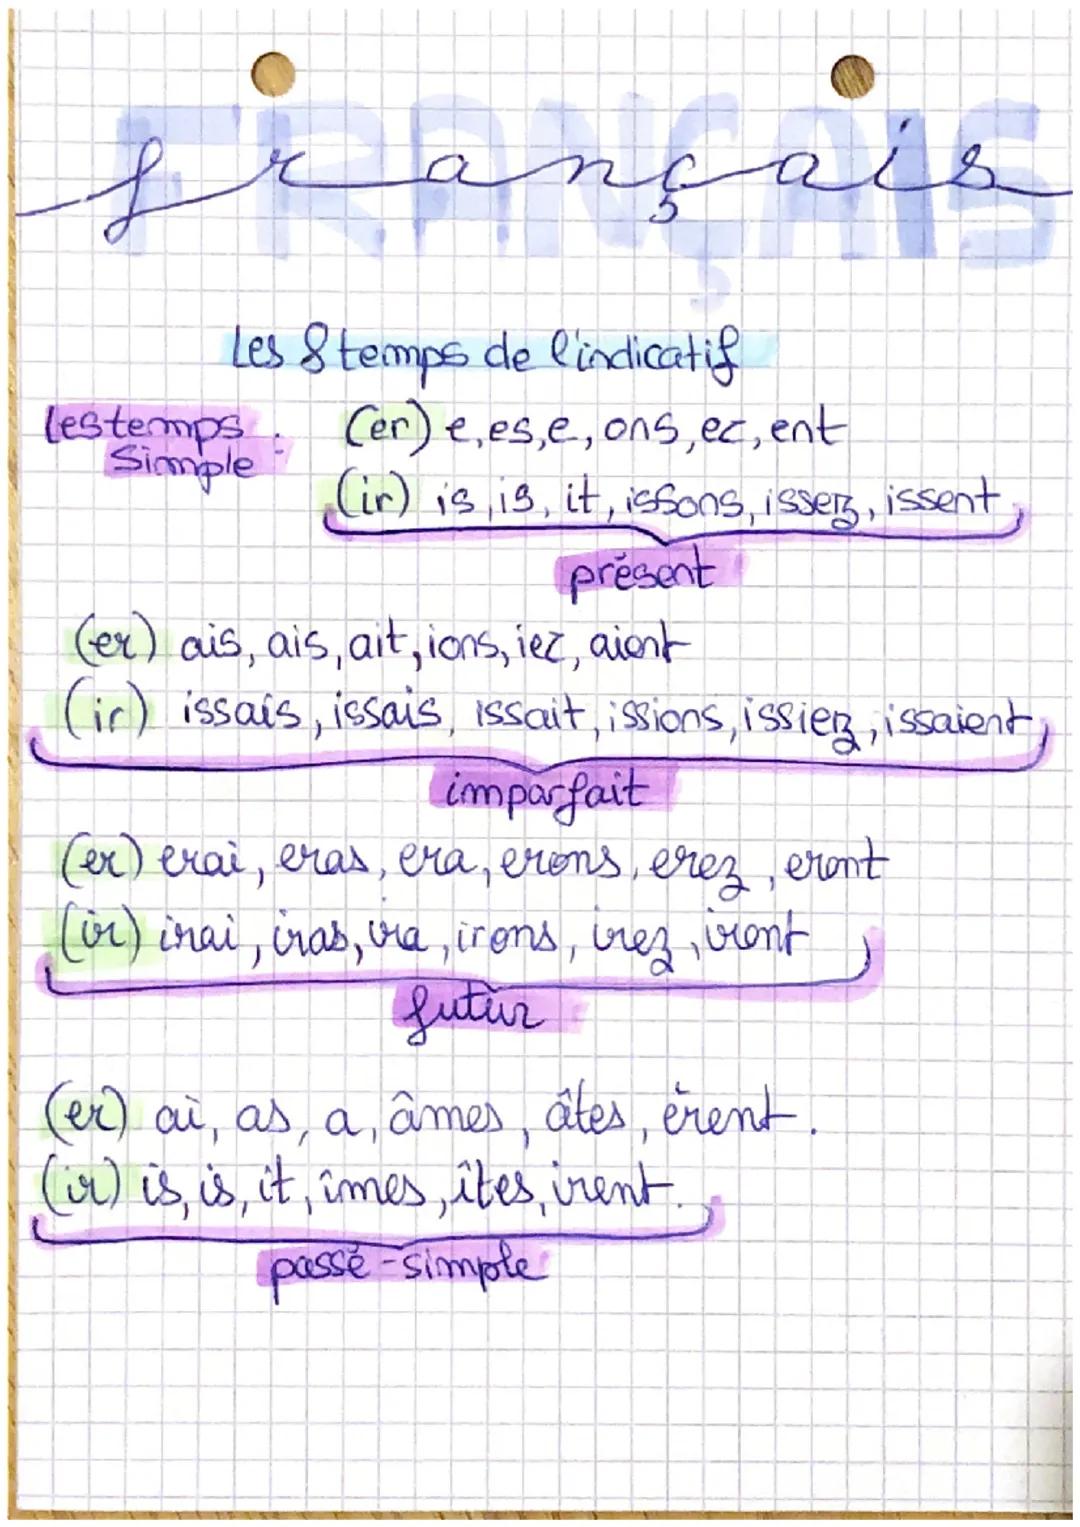 FRANÇAIS
français
Les 8 temps de l'indicatif
Les temps Simple :
(er) e, es, e, ons, ez, ent
(ir) is, is, it, issons, issez, issent
présent
(er) ais, ais, ait, ions, iez, aient
(ir) issais, issais, issait, issions, issiez, issaient
imparfait
(er) erai, eras, era, erons, erez, eront
(ir) irai, iras, ira, irons, irez, iront
futur
(er) ai, as, a, âmes, âtes, èrent.
(ir) is, is, it, îmes, îtes, irent.
passé-simple